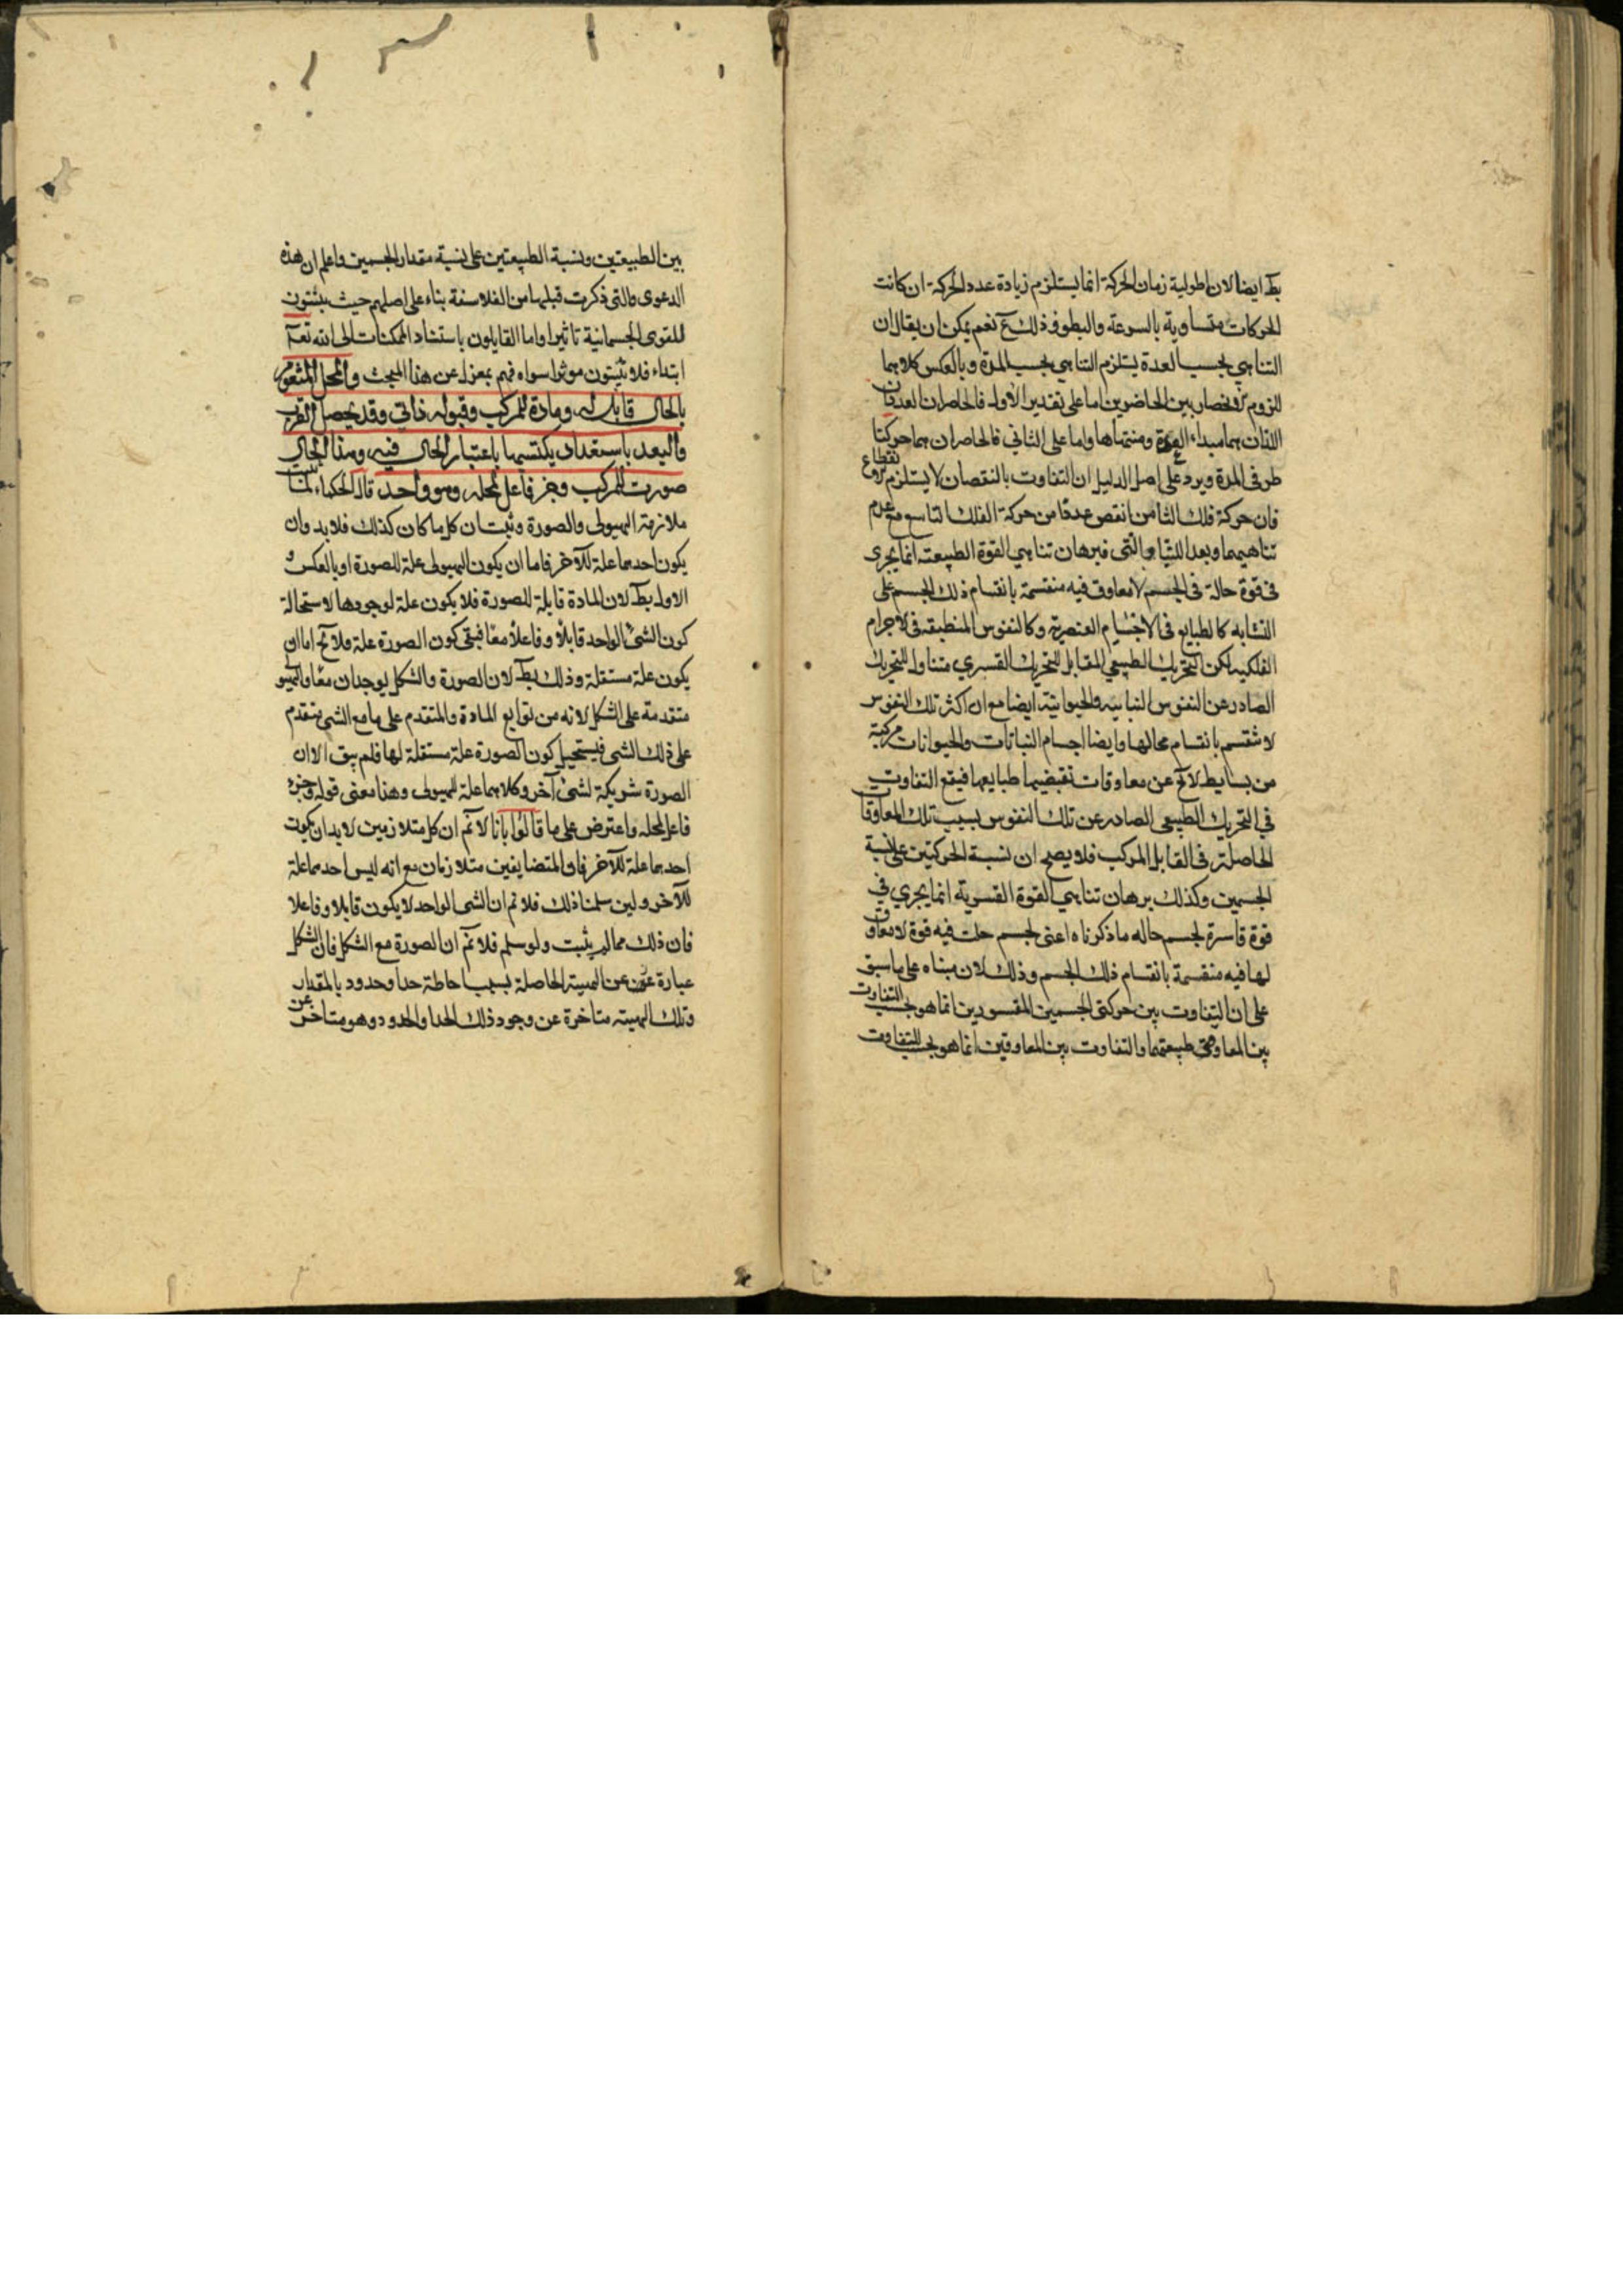 بط ايضا لان اطولية زمان الحركة انما يستلزم زيادة عدد الحركة ان كانت
الحركات متساوية بالسرعة والبطو وذلك مع نعم يمكن ان يقال ان
التناهي بحسب العدة يستلزم التناهي بحسب المدة وبالعكس كلاهما
للزوم الانحصار بين الحاصرين اما على تقدير الاول فالحاصران العددان
اللذان هما مبداء العدة ومنتهاها واما على الثاني فالحاصران هما حركتا
طرفي المدة ويرد على اصل الدليل ان التفاوت بالنقصان لا يستلزم الانقطاع
فان حركة فلك الثامن انقص عددا من حركة الفلك التاسع مع عدم
تناهيهما وبعد اللتيا والتى فبرهان تناهي القوة الطبيعته انما يجرى
فى قوة حالة فى الجسم لا معاوق فيه منقسمة بانقسام ذلك الجسم على
التشابه كالطبايع فى الاجسام العنصرية وكالنفوس المنطبقه فى الاجرام
الفلكيه لكن التحريك الطبيعي المقابل للتحريك القسري متناول للتحريك
الصادر عن النفوس النباتيه والحيوانيته ايضا مع ان اكثر تلك النفوس
لا تنقسم بانقسام محالها وايضا اجسام النباتات والحيوانات مركبة
من بسايط لا تخ عن معاوقات تقتضيها طبايعها فيقع التفاوت
في التحريك الطبيعى الصادر عن تلك النفوس بسبب تلك المعاوقا
الحاصلة فى القابل المركب فلا يصح ان نسبة الحركتين على نسبة
الجسمين وكذلك برهان تناهي القوة القسرية انما يجري في
قوة قاسرة لجسم حاله ما ذكرناه اعنى لجسم حلت فيه قوة لا معاوق
لها فيه منقسمة بانقسام ذلك الجسم وذلك لان مبناه على ما سبق
على ان التفاوت بين حركتى الجسمين المقسورين انما هو بحسب التفاوت
بين المعاوقتى طبيعتهما والتفاوت بين المعاوقين انما هو بحسب التفاوت
بين الطبيعتين ونسبة الطبيعتين على نسبة مقدار الجسمين واعلم ان هذه
الدعوى والتى ذكرت قبلها من الفلاسفة بناء على اصلهم حيث يثبتون
للقوى الجسمانية تاثيرا واما القايلون باستناد الممكنات الى الله تعا
ابتداء فلا يثبتون موثرا سواه فهم بمعزل عن هذا المبحث والمحل المتقوم
بالحال قابل له ومادة للمركب وقبوله ذاتي وقد يحصل القرب
والبعد باستعداد يكتسبها باعتبار الحال فيه وهذا الحال
صورت للمركب وجزء فاعل لمحله وهو واحد قال الحكماء لما ثبت
ملازمة الهيولى والصورة وثبت ان كل ما كان كذلك فلا بد وان
يكون احدهما علة للآخر فاما ان يكون الهيولى علة للصورة او بالعكس و
الاول بط لان المادة قابلة للصورة فلا يكون علة لوجودها لاستحالة
كون الشئ الواحد قابلا وفاعلا معا فبقى كون الصورة علة ولا تخ اما ان
يكون علة مستقلة وذلك بط لان الصورة والشكل يوجدان معا والهيو
متقدمة على الشكل لانه من توابع المادة والمتقدم على ما مع الشئ متقدم
على ذلك الشى فيستحيل كون الصورة علة مستقلة لها فلم يبق الا ان
الصورة شريكة لشئ آخر وكلاهما علة للهيولى وهذا معنى قوله وجزء
فاعل لمحله واعترض على ما قالوا بانا لا نم ان كل متلازمين لا بد ان يكون
احدهما علة للآخر فان المتضايفين متلازمان مع انه ليس احدهما علة
للآخر ولين سلمنا ذلك فلا نم ان الشى الواحد لا يكون قابلا وفاعلا
فان ذلك مما لم يثبت ولو سلم فلا نم ان الصورة مع الشكل فان الشكل
عبارة عن الهيئة الحاصلة بسبب احاطة حد او حدود بالمقدار
وتلك الهيئه متاخرة عن وجود ذلك الحد او الحدود وهو متاخر عن